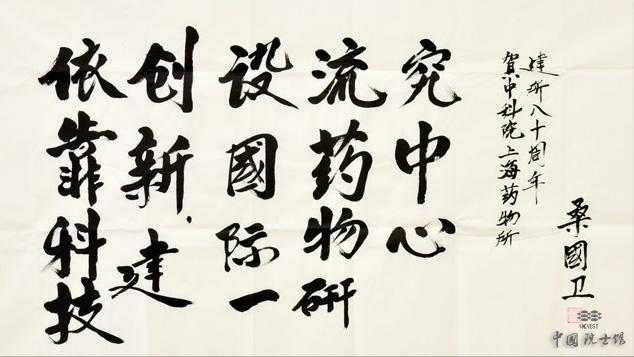 依靠科技
创新，建
设國际一
流药物研
究中心
賀中科院上海药物所
建所八十周年
桑國卫
中國院士馆